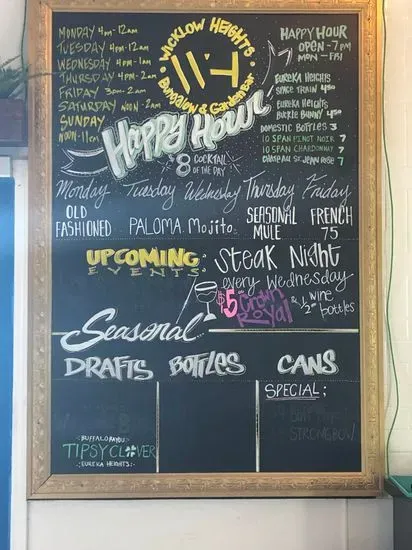 MONDAY 4pm-12am
TUESDAY 4pm-12am
WEDNESDAY 4pm-1am
THURSDAY 4pm-2am
FRIDAY 3pm-2am
SATURDAY NOON-2am
SUNDAY
NOON-11pm
WICKLOW HEIGHTS
WH
Bungalow & Garden Bar
HAPPY HOUR
OPEN-7PM
MON-FRI
EUREKA HEIGHTS
SPACE TRAIN 4.50
EUREKA HEIGHTS
BUCKLE BUNNY 4.50
DOMESTIC BOTTLES 3
10 SPAN PINOT NOIR 7
10 SPAN CHARDONNAY 7
CHATEAU ST. JEAN RISE 7
Happy Hour
$8 COCKTAIL
OF THE DAY
Monday Tuesday Wednesday Thursday Friday
OLD
FASHIONED
PALOMA
Mojito
SEASONAL
MULE
FRENCH
75
UPCOMING
EVENTS
Steak Night
every Wednesday
$5 Crown
Royal
& 1/2 wine
bottles
Seasonal
DRAFTS BOTTLES CANS
SPECIAL:
STRONGBOW
BUFFALO BAYOU
TIPSY CLOVER
:EUREKA HEIGHTS: